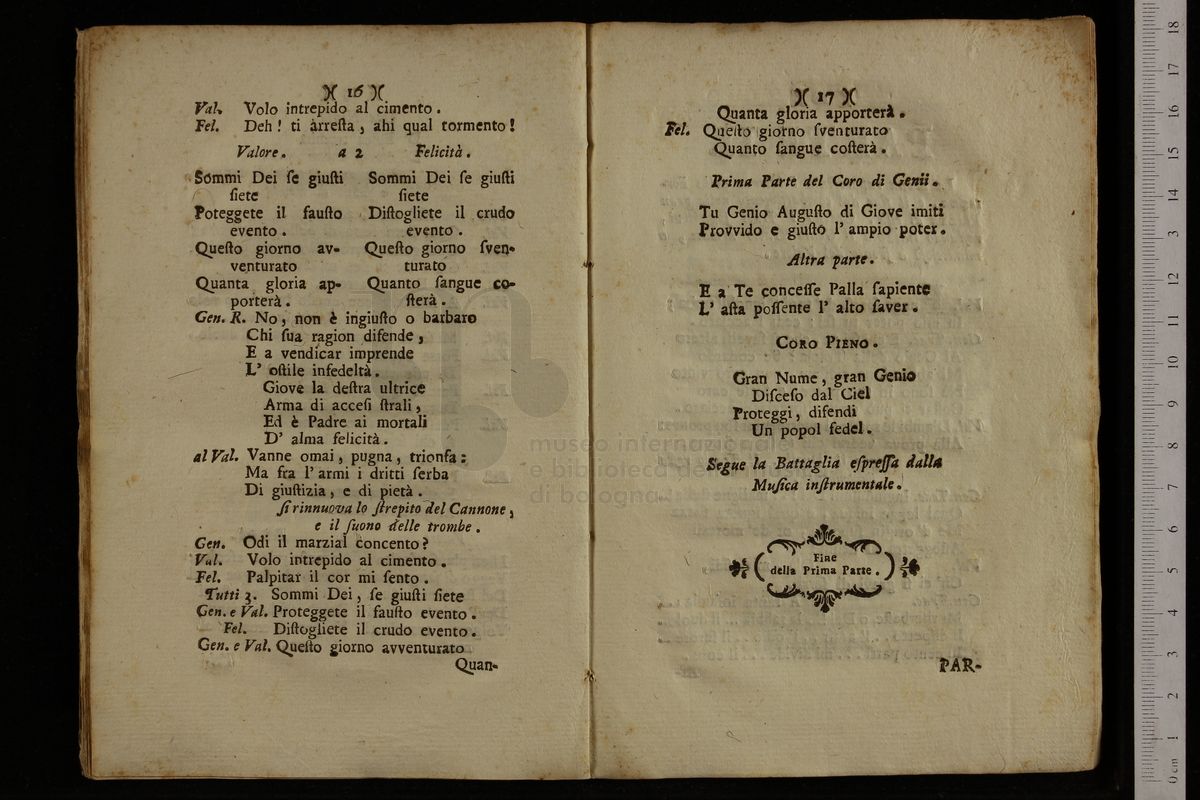 )( 16 )(
Val. Volo intrepido al cimento.
Fel. Deh! ti arreſta, ahi qual tormento!
Valore. a 2 Felicità.
Sommi Dei ſe giuſti
ſiete
Poteggete il fauſto
evento.
Queſto giorno av-
venturato
Quanta gloria ap-
porterà.
Sommi Dei ſe giuſti
ſiete
Diſtogliete il crudo
evento.
Queſto giorno ſven-
turato
Quanto ſangue co-
ſterà.
Gen. R. No, non è ingiuſto o barbaro
Chi ſua ragion difende,
E a vendicar imprende
L' oſtile infedeltà.
Giove la deſtra ultrice
Arma di acceſi ſtrali,
Ed è Padre ai mortali
D' alma felicità.
al Val. Vanne omai, pugna, trionfa:
Ma fra l' armi i dritti ſerba
Di giuſtizia, e di pietà.
ſi rinnuova lo ſtrepito del Cannone,
e il ſuono delle trombe.
Gen. Odi il marzial concento?
Val. Volo intrepido al cimento.
Fel. Palpitar il cor mi ſento.
Tutti 3. Sommi Dei, ſe giuſti ſiete
Gen. e Val. Proteggete il fauſto evento.
Fel. Diſtogliete il crudo evento.
Gen. e Val. Queſto giorno avventurato
Quan-
)( 17 )(
Quanta gloria apporterà.
Fel. Queſto giorno ſventurato
Quanto ſangue coſterà.
Prima Parte del Coro di Genii.
Tu Genio Auguſto di Giove imiti
Provvido e giuſto l' ampio poter.
Altra parte.
E a Te conceſſe Palla ſapiente
L' aſta poſſente l' alto ſaver.
CORO PIENO.
Gran Nume, gran Genio
Diſceſo dal Ciel
Proteggi, difendi
Un popol fedel.
Segue la Battaglia eſpreſſa dalla
Muſica inſtrumentale.
Fine
della Prima Parte.
PAR-
museo internazionale
e biblioteca de
di bologna
0 cm 1 2 3 4 5 6 7 8 9 10 11 12 13 14 15 16 17 18